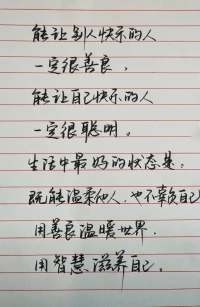 能让别人快乐的人
一定很善良，
能让自己快乐的人
一定很聪明。
生活中最好的状态是：
既能温柔他人，也不辜负自己
用善良温暖世界，
用智慧滋养自己。